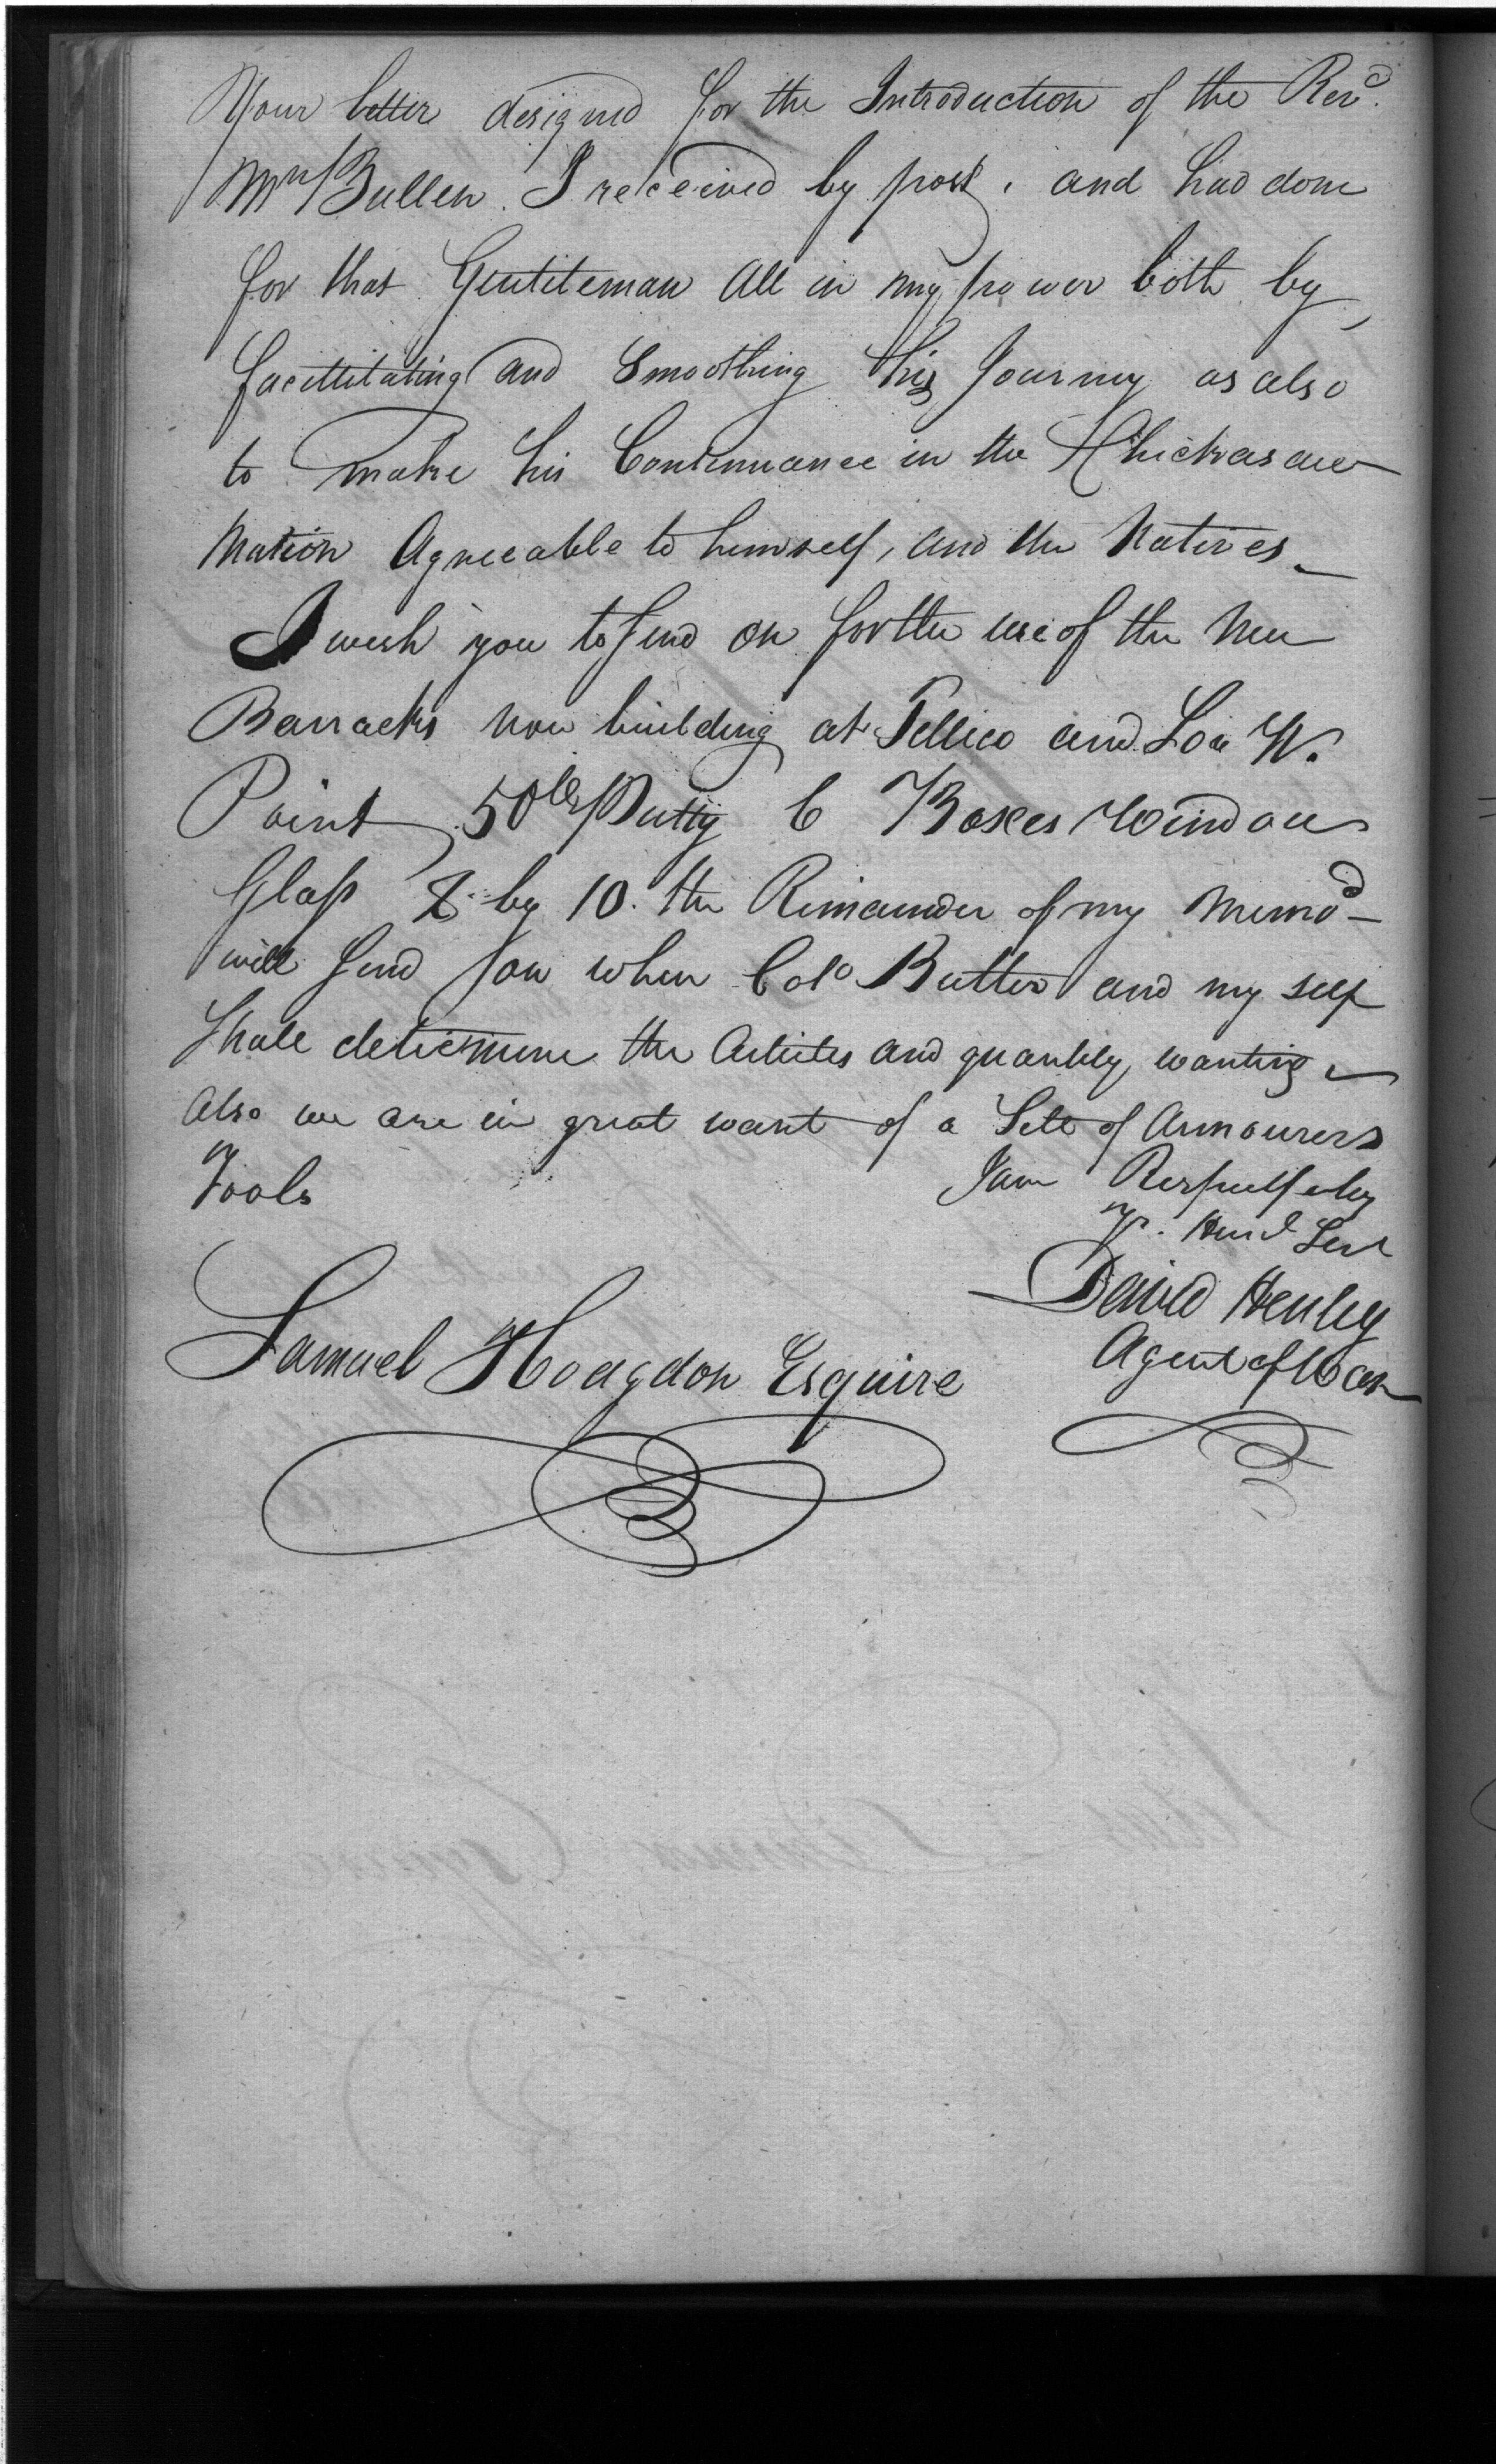 Your letter designed for the Introduction of the Revd.
Mr Bullen. I received by post, and had done
for that Gentleman All in my power both by
facillitating and Smoothing his Journey as also
to make his Continuance in the Chickasaw
Nation Agreeable to himself, and the Natives
I wish you to send on for the use of the New
Barracks now building at Tellico and So W.
Point 50lb Putty 6 Boxes Window
Glass 8 by 10. the Remainder of my Memod
will send you when Colo Butler and my self
Shall determine the Articles and quantity wanting
also we are in great want of a Sett of Armourers
Tools
I am Respectfully
Yr. Hum'l Servt
David Henley
Agent of War
Samuel Hodgdon Esquire